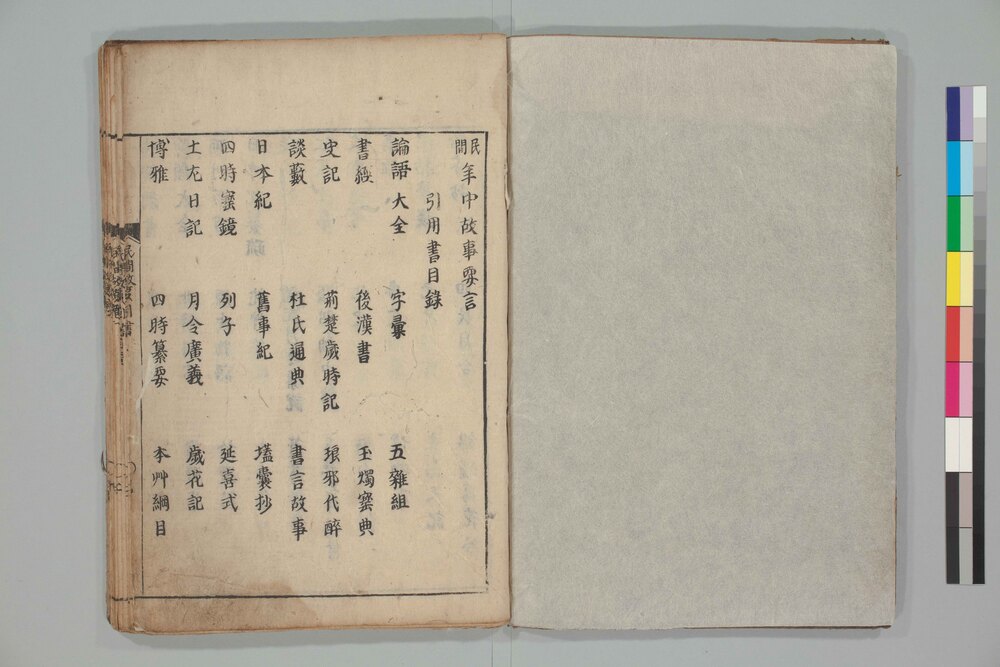 民間年中故事要言
引用書目錄
論語大全 字彙 五雜組
書經 後漢書 玉燭宝典
史記 荊楚歲時記 琅邪代醉
談藪 杜氏通典 書言故事
日本紀 舊事紀 壒囊抄
四時蜜鏡 列子 延喜式
土左日記 月令廣義 歲花記
博雅 四時纂要 本艸綱目